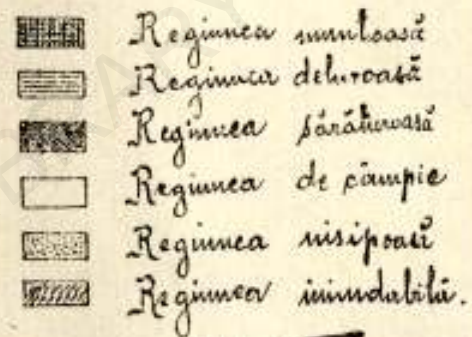 Regiunea muntoasă
Regiunea deluroasă
Regiunea sărăturoasă
Regiunea de câmpie
Regiunea nisipoasă
Regiunea inundabilă.